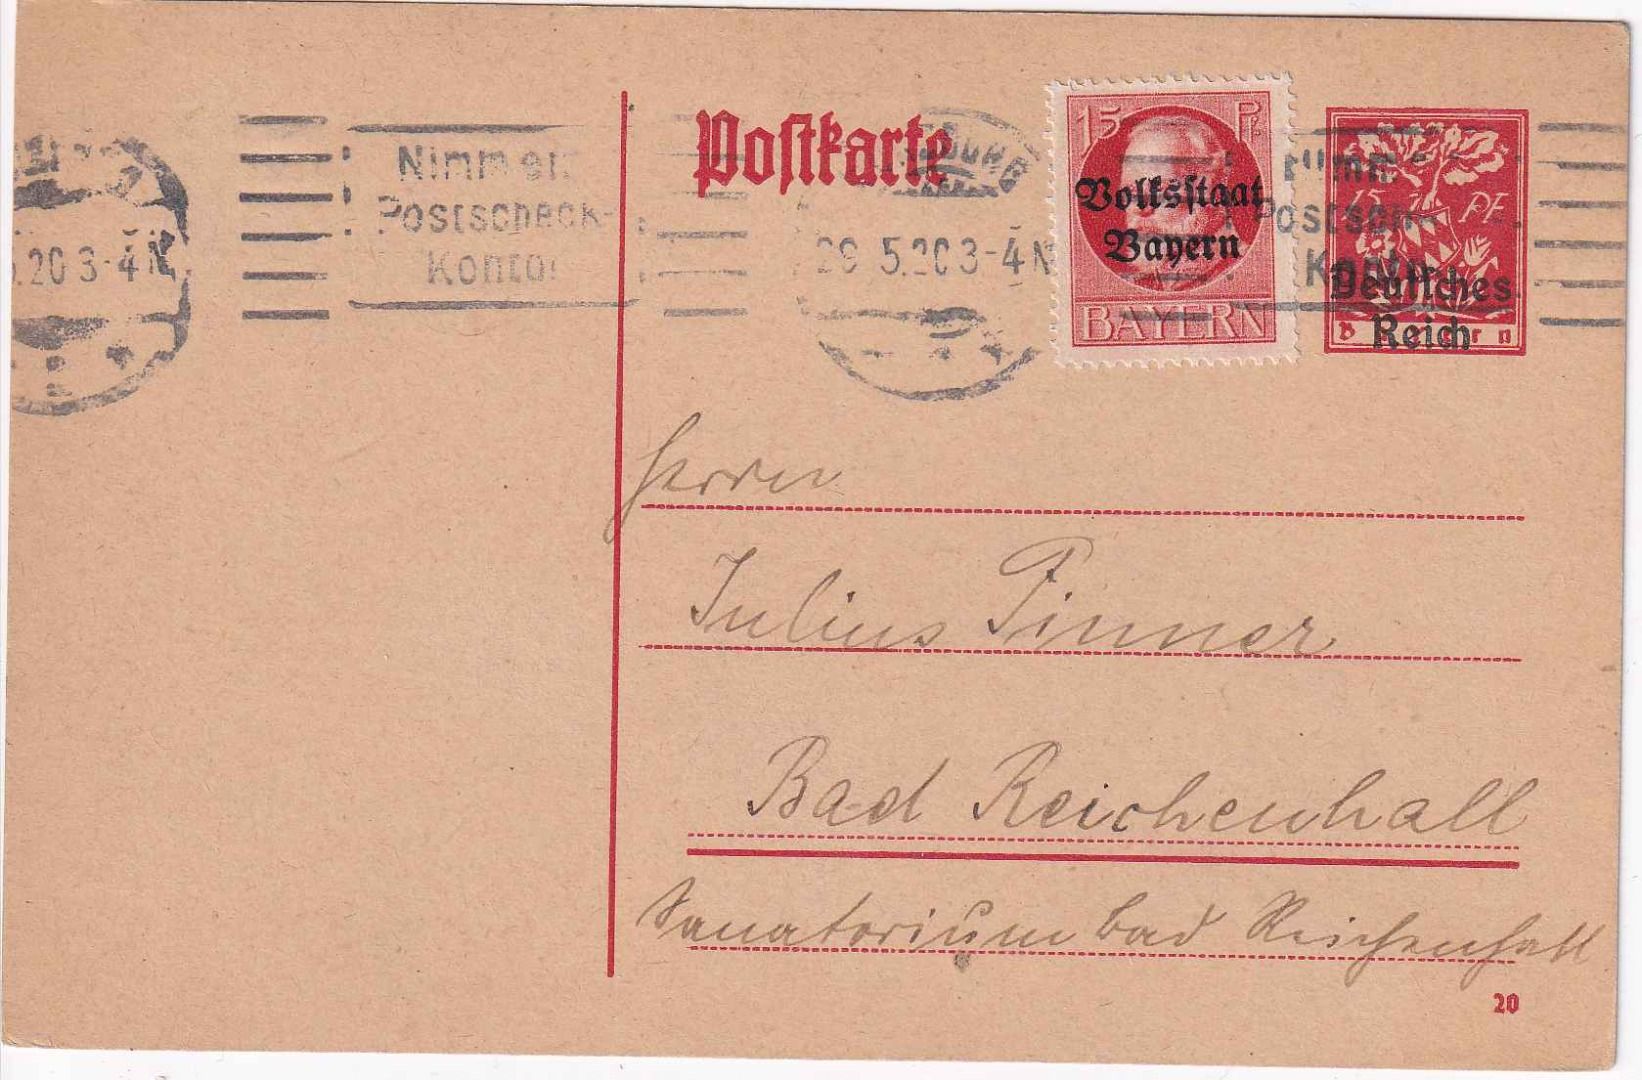 Postkarte
15 Pf.
Volksstaat
Bayern
BAYERN
15 PF
Deutsches
Reich
5.20 3-4 N
Nimm ein
Postscheck-
Konto!
5.20 3-4 N
Nimm
Postsch
Konto
Herrn
Julius Pinner
Bad Reichenhall
Sanatorium Bad Reichenhall
20